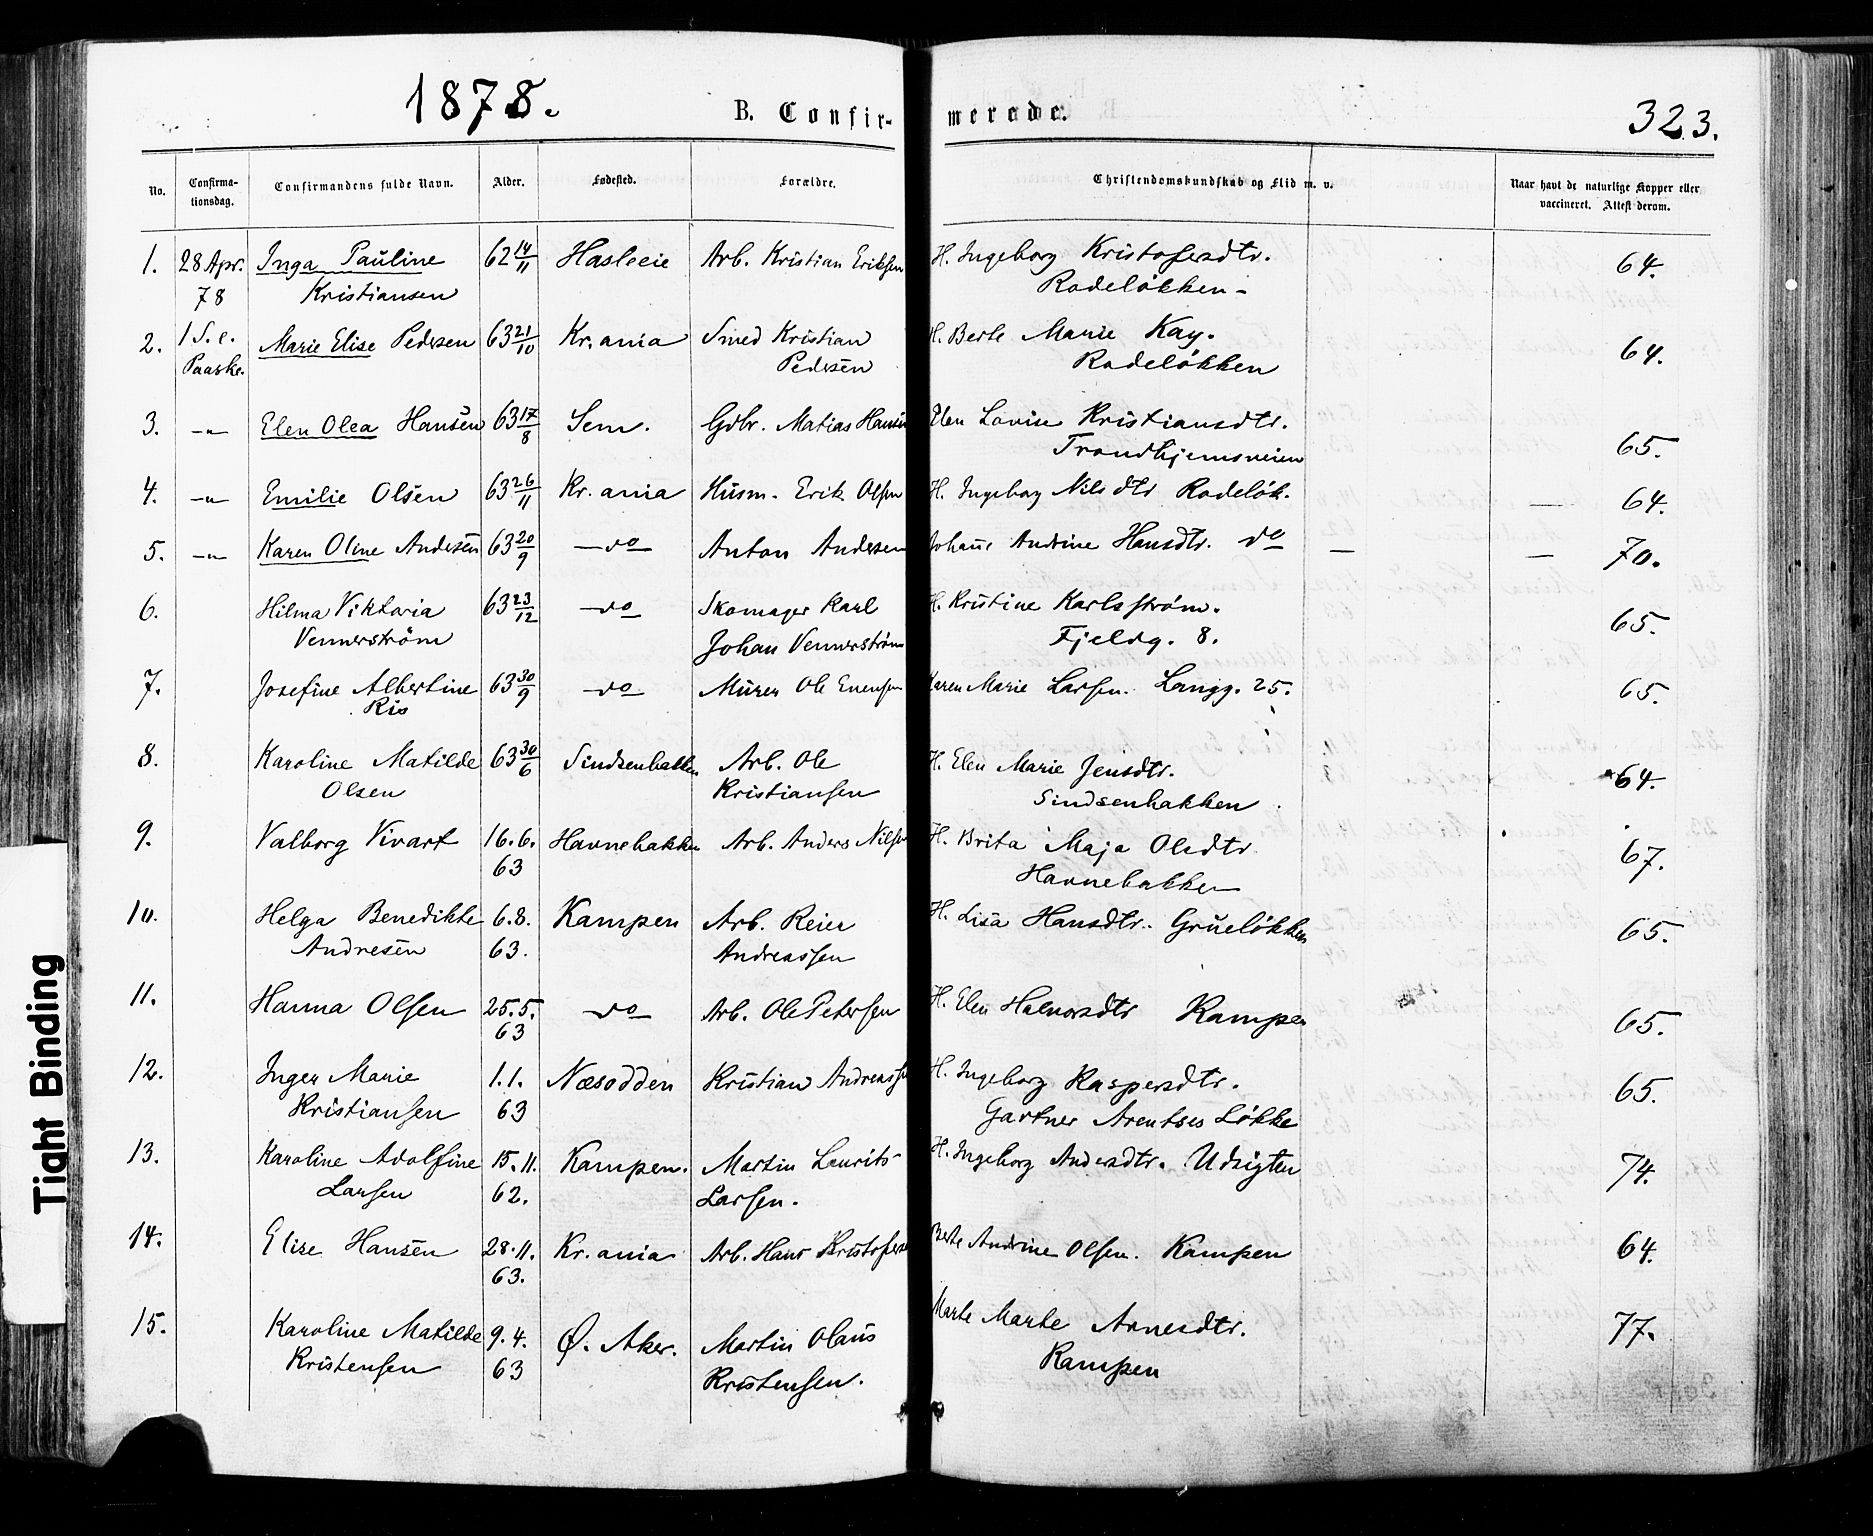 1878.
B. Confirmerede.
323.
No. Confirmationsdag. Confirmandens fulde Navn. Alder. Fødested. Forældre. Christendomskundskab og Flid m. v. Naar havt de naturlige Kopper eller vaccineret. Attest derom.
1. 28 Apr. Inga Pauline 62 14/11 Hasleeie Arb. Kristian Eriksen H. Ingeborg Kristofersdtr. 64.
78 Kristiansen Rodeløkken
2. 1 S. e. Marie Elise Pedersen 63 21/10 Kr.ania Smed Kristian H. Berte Marie Kay. 64.
Paaske. Pedersen Rodeløkken
3. -"- Elen Olea Hansen 63 17/8 Sem. Gdbr. Matias Hansen Elen Lovise Kristiansdtr. 65.
Trondhjemsveien
4. -"- Emilie Olsen 63 26/11 Kr.ania Husm. Erik Olsen H. Ingeborg Nilsdtr Rodeløk. 64.
5. -"- Karen Oline Andersen 63 20/9 do Anton Andersen Johane Andrine Hansdtr. do 70.
6. Hilma Viktoria 63 23/12 do Skomager Karl H. Kristine Karlsstrøm. 65.
Vennerstrøm Johan Vennerstrøm Fjeldg. 8.
7. Josefine Albertine 63 30/9 do Murer Ole Evensen Karen Marie Larsen. Langg. 25. 65.
Ris
8. Karoline Matilde 63 30/6 Sindsenbakken Arb. Ole H. Elen Marie Jensdtr. 64.
Olsen Kristiansen Sindsenbakken
9. Valborg Kvart 16.6. Havnebakken Arb. Anders Nilsen H. Brita Maja Olsdtr 67.
63 Havnebakken
10. Helga Benedikte 6.8. Kampen Arb. Reier H. Lisa Hansdtr. Grueløkken 65.
Andresen 63. Andreassen
11. Hanna Olsen 25.5. do Arb. Ole Petersen H. Elen Halvorsdtr Kampen 65.
63
12. Inger Marie 1.1. Næsodden Kristian Andreassen H. Ingeborg Kaspersdtr. 65.
Kristiansen 63 Gartner Arentses Løkke
13. Karoline Adolfine 15.11. Kampen. Martin Laurits H. Ingeborg Andersdtr. Udsigten 74.
Larsen 62. Larsen.
14. Elise Hansen 28.11. Kr.ania Arb. Hans Kristofersen Berte Andrine Olsen. Kampen 64.
63.
15. Karoline Matilde 9.4. Ø. Aker. Martin Olaus Marte Marte Arnesdtr. 77.
Kristensen 63 Kristensen. Kampen
Tight Binding